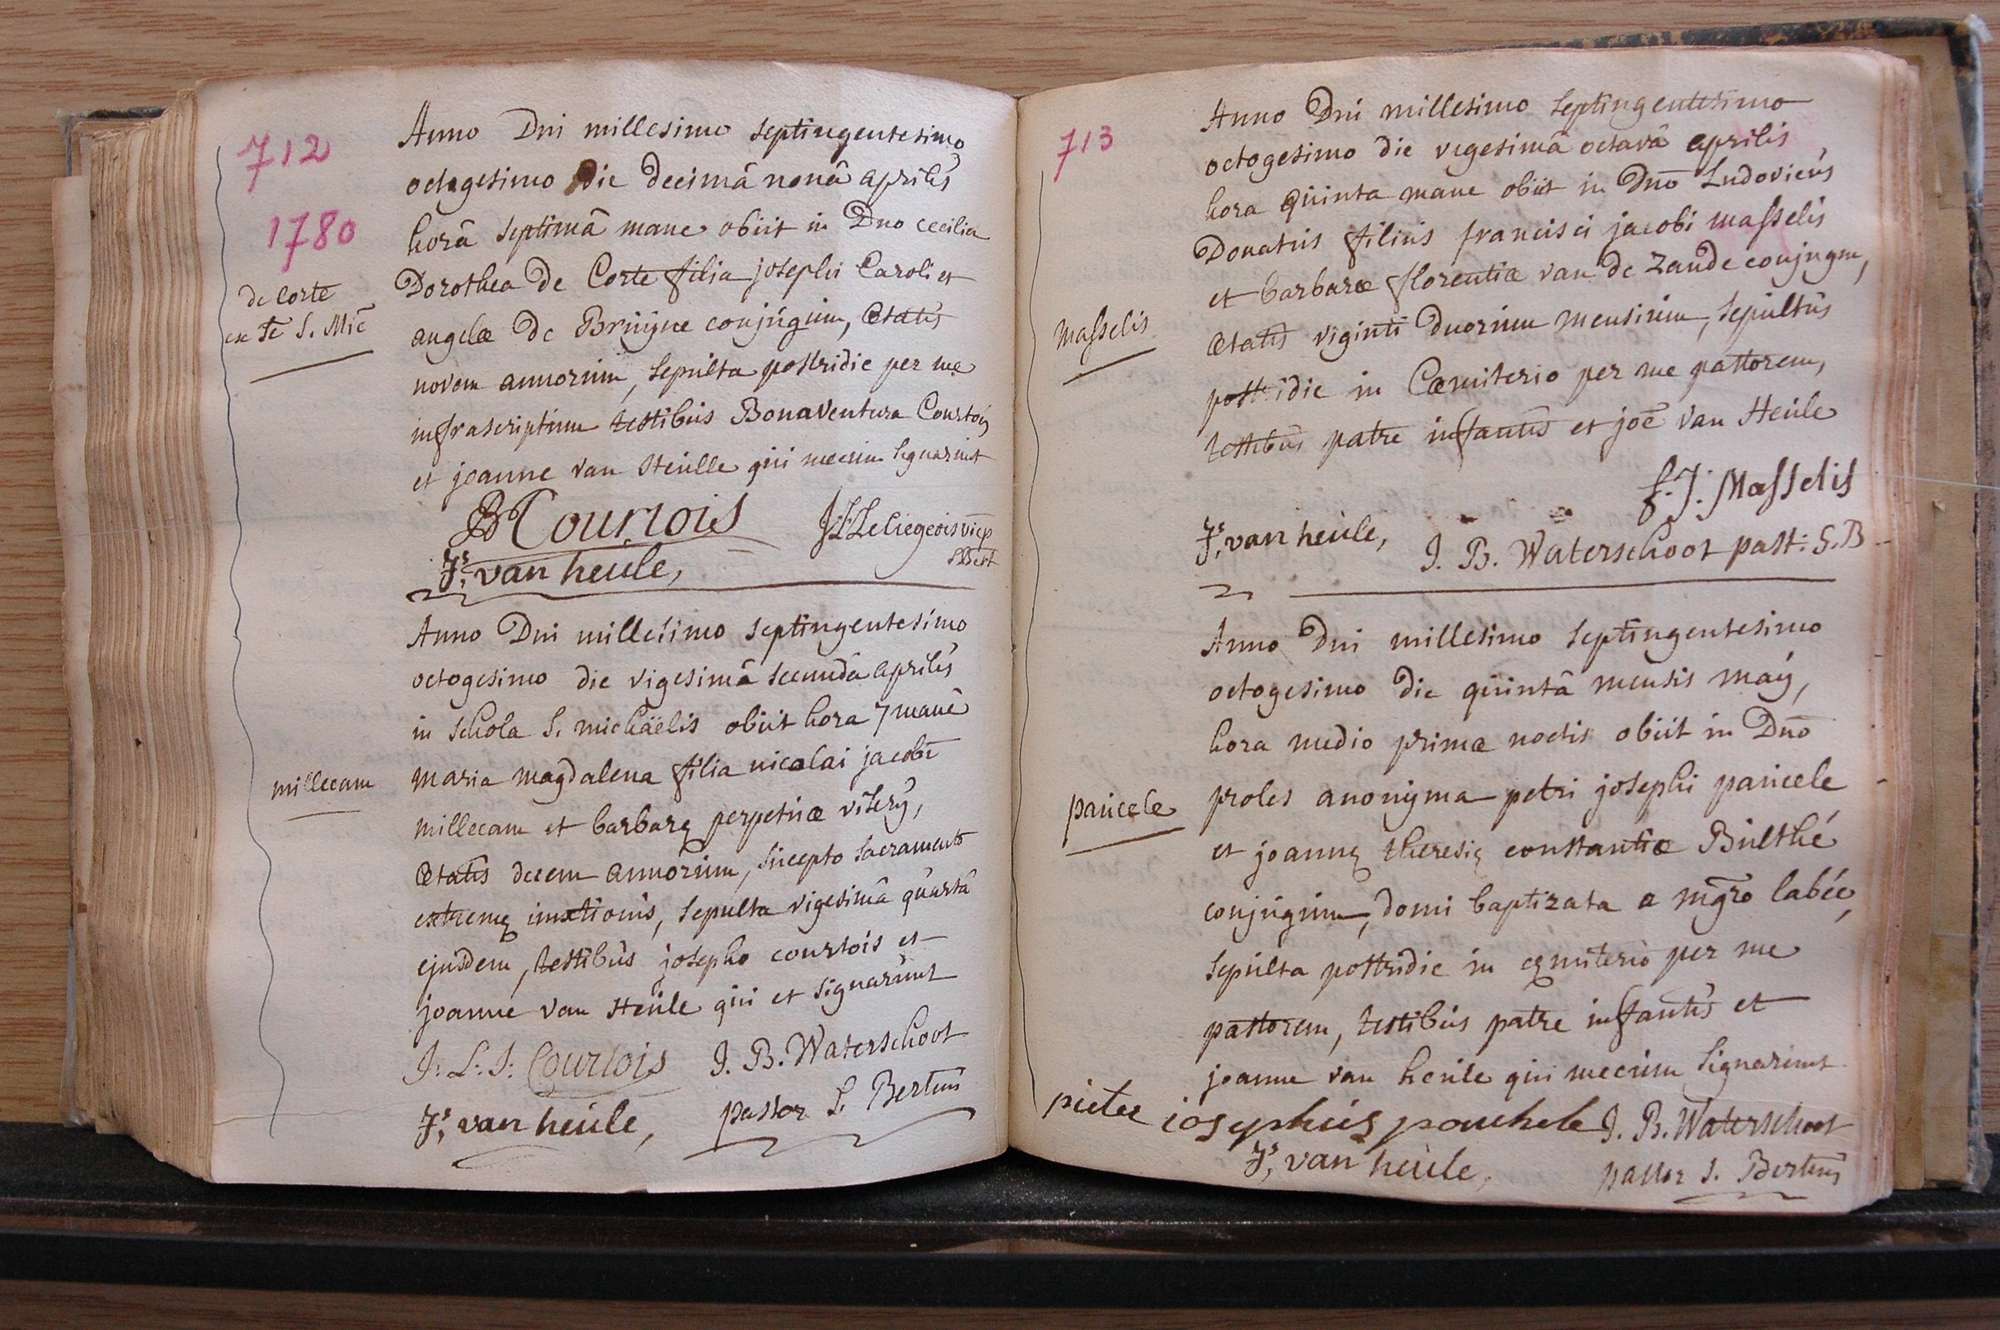 712
1780
de Corte
ex Sē S. Mic̄
Anno Dni millesimo septingentesimo
octogesimo die decimâ nonâ aprilis
horâ septimâ mane obiit in Dno cecilia
Dorothea de Corte filia josephi Caroli et
angelæ de Bruijne conjugum, ætatis
novem annorum, sepulta postridie per me
infrascriptum testibus Bonaventura Courtois
et joanne van Heulle qui mecum signarunt
B Courtois
J: L: Leliegeois vicep
SBert
Js. van heule,
millecam
Anno Dni millesimo septingentesimo
octogesimo die vigesimâ secundâ aprilis
in schola S. michäelis obiit hora 7 mane
maria magdalena filia nicolai jacobi
millecam et barbarę perpetuæ viserÿ,
ætatis decem annorum, suscepto sacramento
extremę unctionis, sepulta vigesimâ quartâ
ejusdem, testibus josepho courtois et
joanne van Heule qui et signarunt
J: L: J: Courtois J. B. Waterschoot
Js. van heule, pastor S. Bertini
713
masselis
Anno Dni millesimo septingentesimo
octogesimo die vegesimâ octavâ aprilis,
hora quinta mane obiit in Dn̄o Ludovicus
Donatus filius francisci jacobi masselis
et barbaræ florentiæ van de Zande conjugm,
ætatis viginti duorum mensium, sepultus
postridie in Cæmiterio per me pastorem,
testibus patre infantis et joē van Heule
f: J: Masselis
Js. van heule, J. B. Waterschoot past: S. B
paucele
Anno Dni millesimo septingentesimo
octogesimo die quintâ mensis maÿ,
hora medio primæ noctis obiit in Dn̄o
proles anonyma petri josephi paucele
et joannę theresię constantiæ Bulthé
conjugum, domi baptizata a mḡro labée,
sepulta postridie in cęmiterio per me
pastorem, testibus patre infantis et
joanne van heule qui mecum signarunt
pieter iosephus pouchele J. B. Waterschoot
Js. van heule, pastor S. Bertini